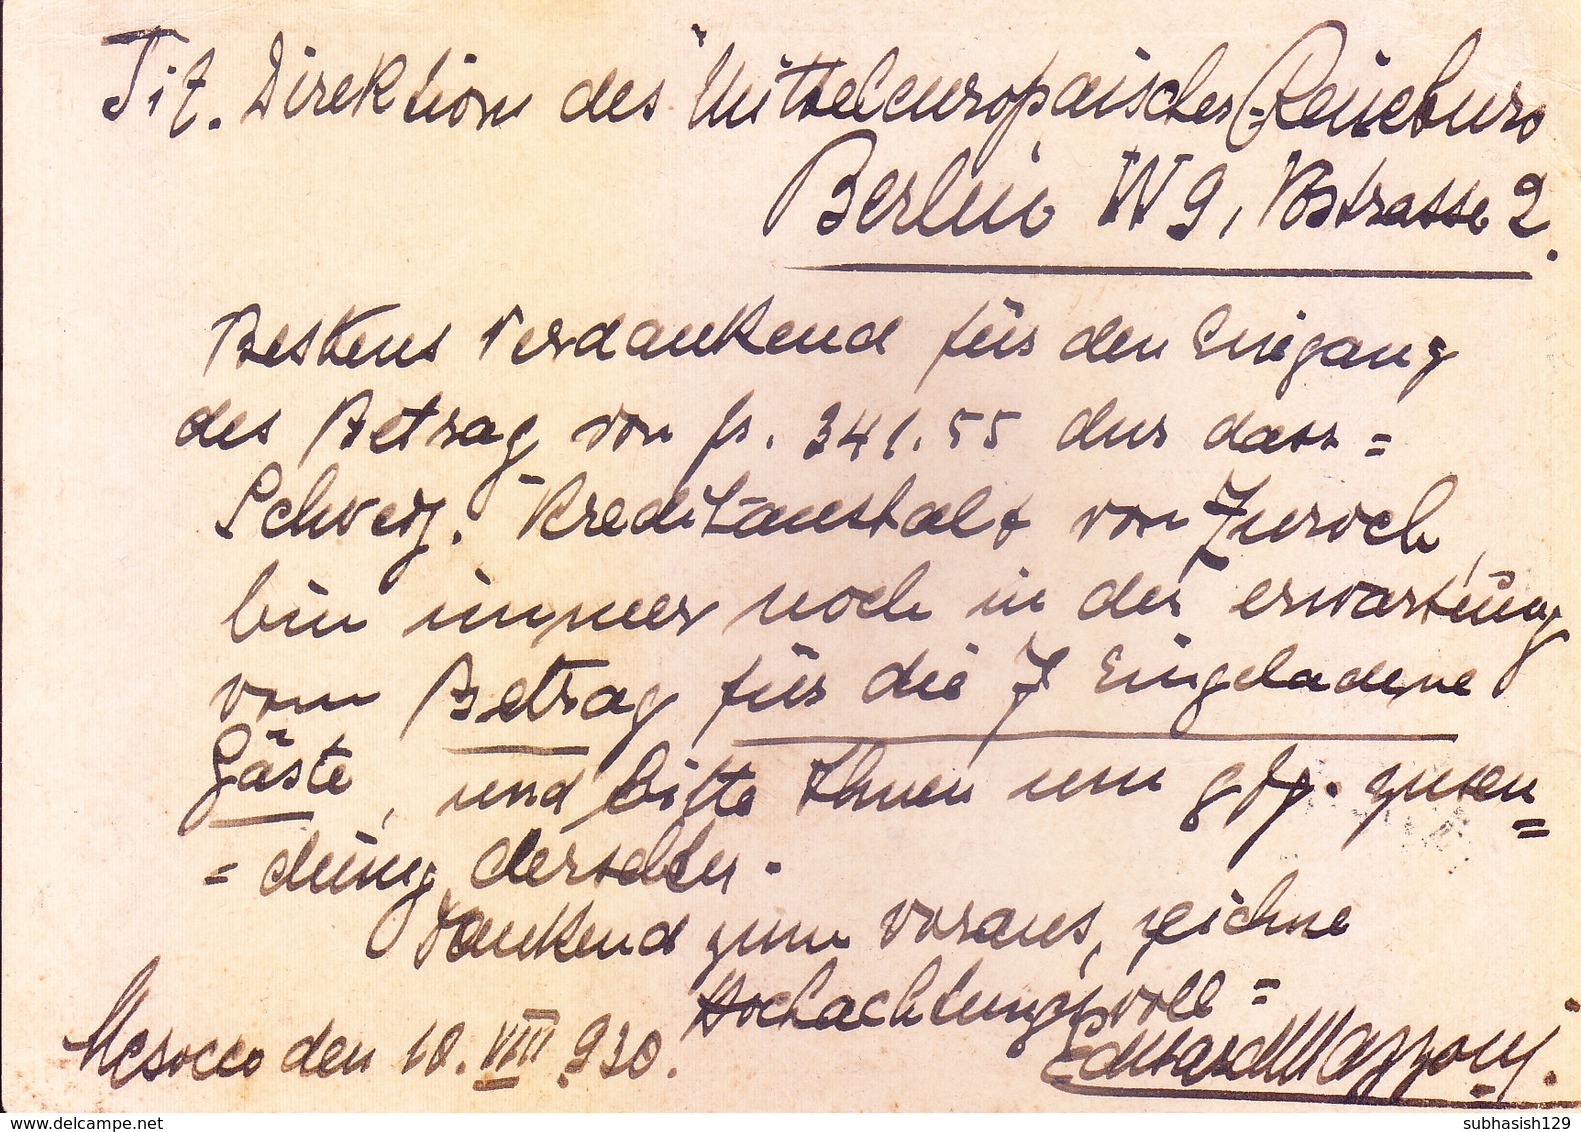 Tit. Direktion des "Mitteleuropäisches-Reiseburo
Berlin W 9, Vosstrasse 2.
Bestens Verdankend für den Eingang
des Betrag von fr. 341.55 dur dass =
Schweiz. Kreditanstalt von Zurich,
bin immer noch in der erwartung
vom Betrag für die 7 Eingeladene
Gäste, und bitte Ihnen um gfg. zusen=
=dung derselben.
Dankend zum voraus, zeichne
Hochachtungsvoll =
Mesocco den 10. VIII 930.
Eduard Mazzoni.
www.delcampe.net
subhasish129